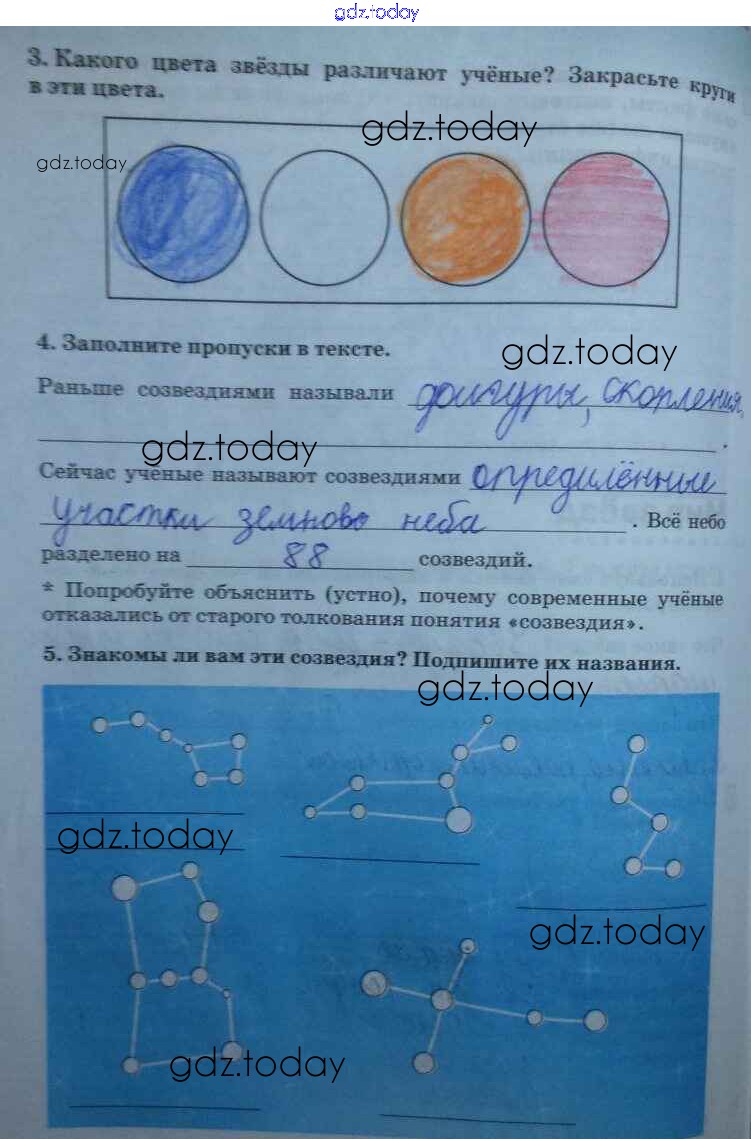 gdz.today
3. Какого цвета звёзды различают учёные? Закрасьте круги
в эти цвета.
gdz.today
gdz.today
4. Заполните пропуски в тексте.
gdz.today
Раньше созвездиями называли фигуры, скопления,
gdz.today
Сейчас учёные называют созвездиями определённые
участки земново неба . Всё небо
разделено на 88 созвездий.
* Попробуйте объяснить (устно), почему современные учёные
отказались от старого толкования понятия «созвездия».
5. Знакомы ли вам эти созвездия? Подпишите их названия.
gdz.today
gdz.today
gdz.today
gdz.today